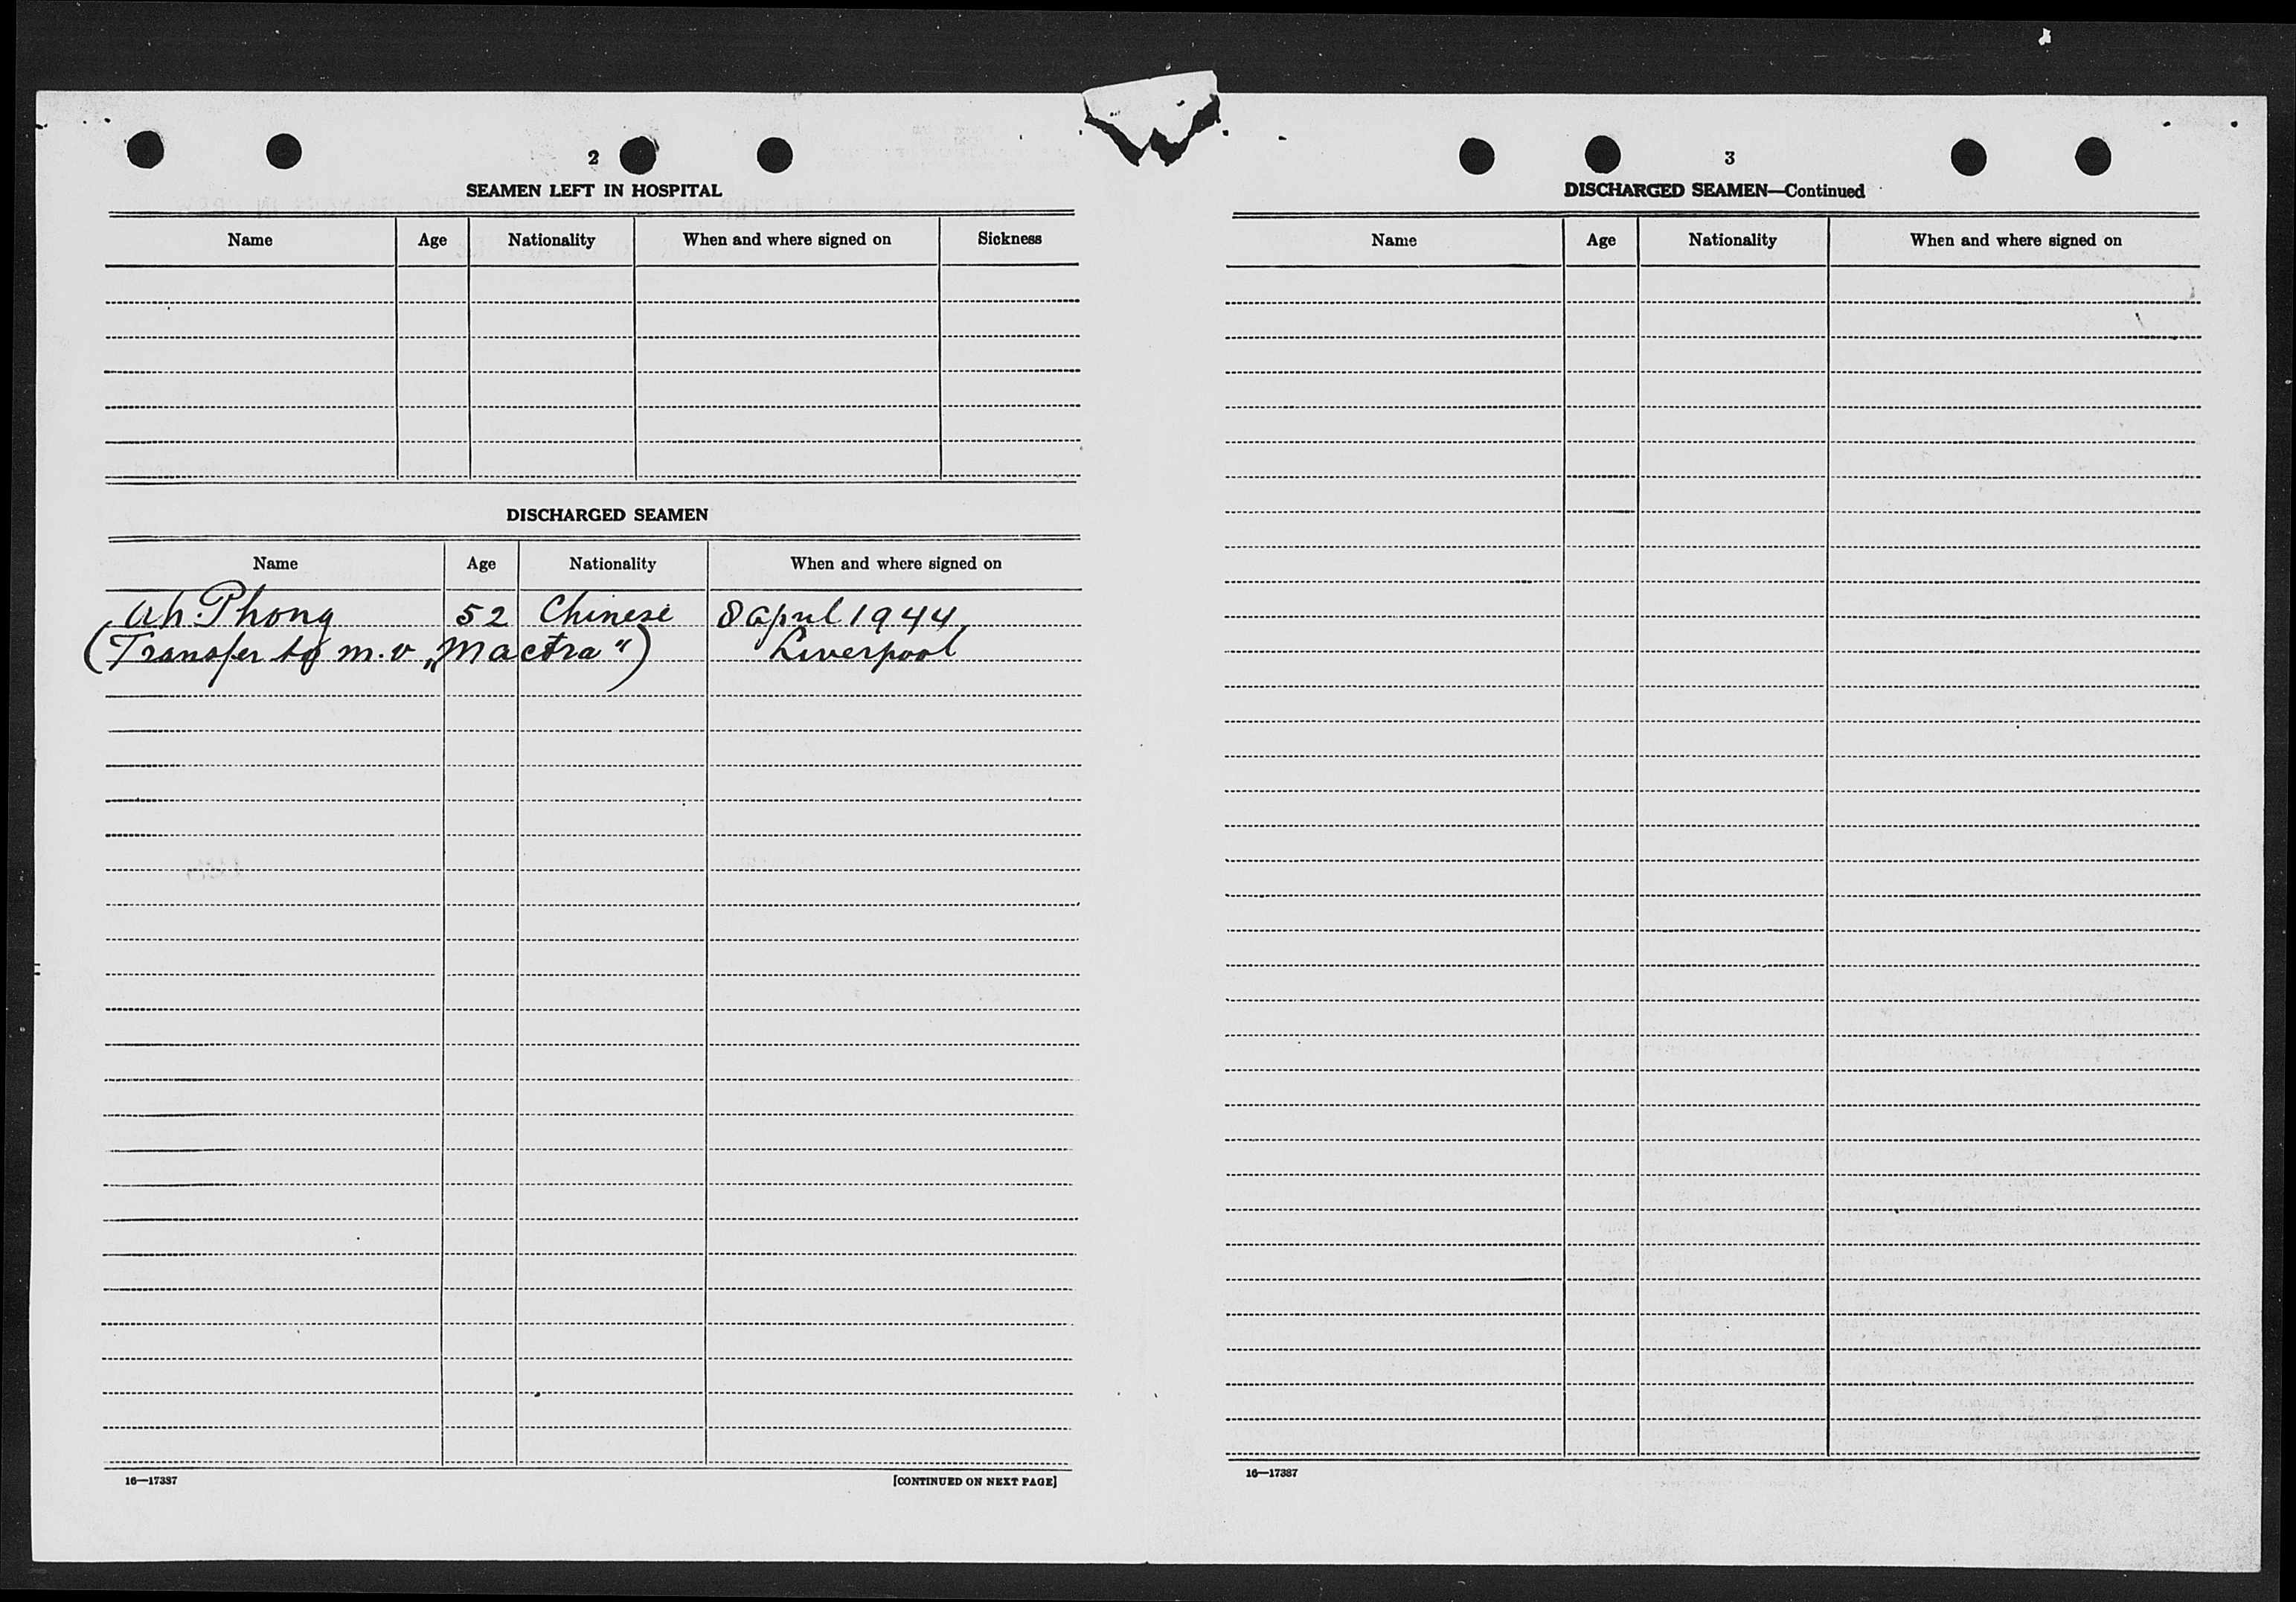 2
SEAMEN LEFT IN HOSPITAL
Name Age Nationality When and where signed on Sickness
DISCHARGED SEAMEN
Name Age Nationality When and where signed on
Ah Phong 52 Chinese 8 april 1944
(Transfer to m.v „Mactra") Liverpool
16—17387
[CONTINUED ON NEXT PAGE]
3
DISCHARGED SEAMEN—Continued
Name Age Nationality When and where signed on
16—17387